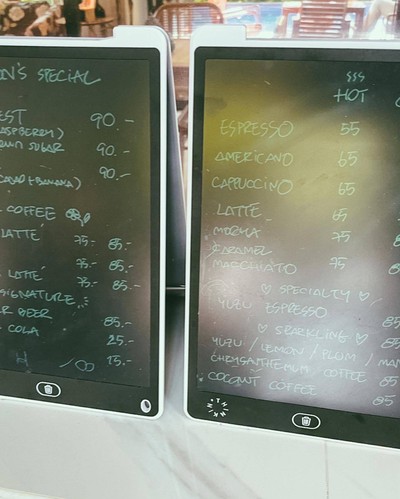 N'S SPECIAL
EST 90.-
ASPBERRY)
OWN SUGAR 90.-
90.-
CACAO + BANANA)
COFFEE
LATTE 75.- 85.-
75.- 85.-
LATTE 75.- 85.-
SIGNATURE
R BEER 85.-
COLA 25.-
15.-
HOT
ESPRESSO 55
AMERICANO 65
CAPPUCCINO 65
LATTE 65
MOCHA 75
CARAMEL
MACCHIATO 75
♡ SPECIALTY ♡
YUZU ESPRESSO 85
♡ SPARKLING ♡
YUZU / LEMON / PLUM / MAN
CHRYSANTHEMUM COFFEE 85
COCONUT COFFEE 85